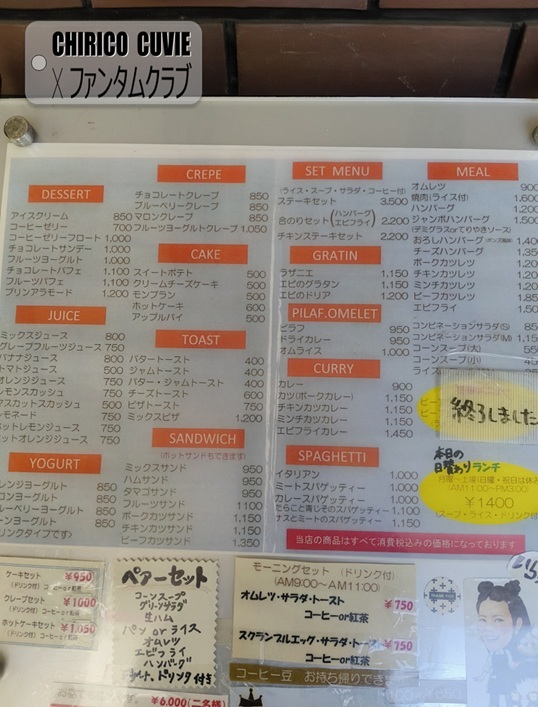 CHIRICO CUVIE
X ファンタムクラブ
DESSERT
アイスクリーム 850
コーヒーゼリー 700
コーヒーゼリーフロート 1.000
チョコレートサンデー 1.000
フルーツヨーグルト 1.000
チョコレートパフェ 1.100
フルーツパフェ 1.100
プリンアラモード 1.200
JUICE
ミックスジュース 800
グレープフルーツジュース 750
バナナジュース 800
トマトジュース 500
オレンジジュース 750
レモンスカッシュ 750
マスカットスカッシュ 500
レモネード 750
ホットレモンジュース 750
ホットオレンジジュース 750
YOGURT
レンジヨーグルト 850
ロンヨーグルト 850
ルーベリーヨーグルト 850
ーンヨーグルト 850
リンクタイプです)
CREPE
チョコレートクレープ 850
ブルーベリークレープ 850
マロンクレープ 850
フルーツヨーグルトクレープ 1.050
CAKE
スイートポテト 500
クリームチーズケーキ 500
モンブラン 500
ホットケーキ 600
アップルパイ 500
TOAST
バタートースト 400
ジャムトースト 400
バター・ジャムトースト 400
チーズトースト 600
ピザトースト 750
ミックスピザ 1.200
SANDWICH
(ホットサンドもできます)
ミックスサンド 950
ハムサンド 950
タマゴサンド 950
フルーツサンド 1100
ポークカツサンド 1.150
チキンカツサンド 1.150
ビーフカツサンド 1.350
SET MENU
(ライス・スープ・サラダ・コーヒー付)
ステーキセット 3.500
合のりセット(ハンバーグ エビフライ) 2.200
チキンステーキセット 2.200
GRATIN
ラザニエ 1.150
エビのグラタン 1.150
エビのドリア 1.200
PILAF.OMELET
ピラフ 950
ドライカレー 950
オムライス 1.000
CURRY
カレー 900
カツ(ポークカレー) 1.150
チキンカツカレー 1.150
ミンチカツカレー 1.150
エビフライカレー 1.450
SPAGHETTI
イタリアン 1.000
ミートスパゲッティー 1.000
カレースパゲッティー 1.000
たらこと青じそのスパゲッティー 1.100
ナスとミートのスパゲッティー 1.150
MEAL
オムレツ 900
焼肉(ライス付) 1.600
ハンバーグ 1.200
ジャンボハンバーグ 1.500
(デミグラスorてりやきソース)
おろしハンバーグ
チーズハンバーグ
ポークカツレツ
チキンカツレツ
ミンチカツレツ
ビーフカツレツ
エビフライ
コンビネーションサラダ(S)
コンビネーションサラダ(M)
コーンスープ(大)
コーンスープ(小)
ライス
終了しました
本日の
日替わりランチ
月曜～土曜(日曜・祝日は休み
(AM11:00～PM3:00)
¥1400
(スープ・ライス・ドリンク付
当店の商品はすべて消費税込みの価格になっております
ケーキセット ¥950
(ドリンク付) コーヒーor紅茶
クレープセット ¥1000
(ドリンク付) コーヒーor紅茶
ホットケーキセット ¥1.050
(ドリンク付) コーヒーor紅茶
ペアーセット
コーンスープ
グリーンサラダ
生ハム
パン or ライス
オムレツ
エビフライ
ハンバーグ
デザート、ドリンク付き
¥6.000(二名様)
モーニングセット (ドリンク付)
(AM9:00～AM11:00)
オムレツ・サラダ・トースト
コーヒーor紅茶 ¥750
スクランブルエッグ・サラダ・トースト
コーヒーor紅茶 ¥750
コーヒー豆 お持ち帰りできま